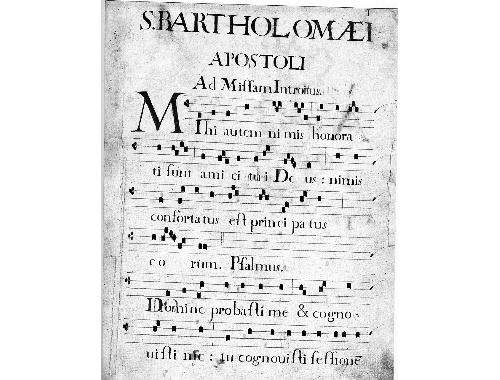 S. BARTHOLOMÆI
APOSTOLI
Ad Missam Introitus.
MIhi autem nimis honora
ti sunt ami ci tui De us : nimis
confortatus est princi pa tus
e o rum. Psalmus.
Domine probasti me & cogno-
uisti me : tu cognouisti sessionē